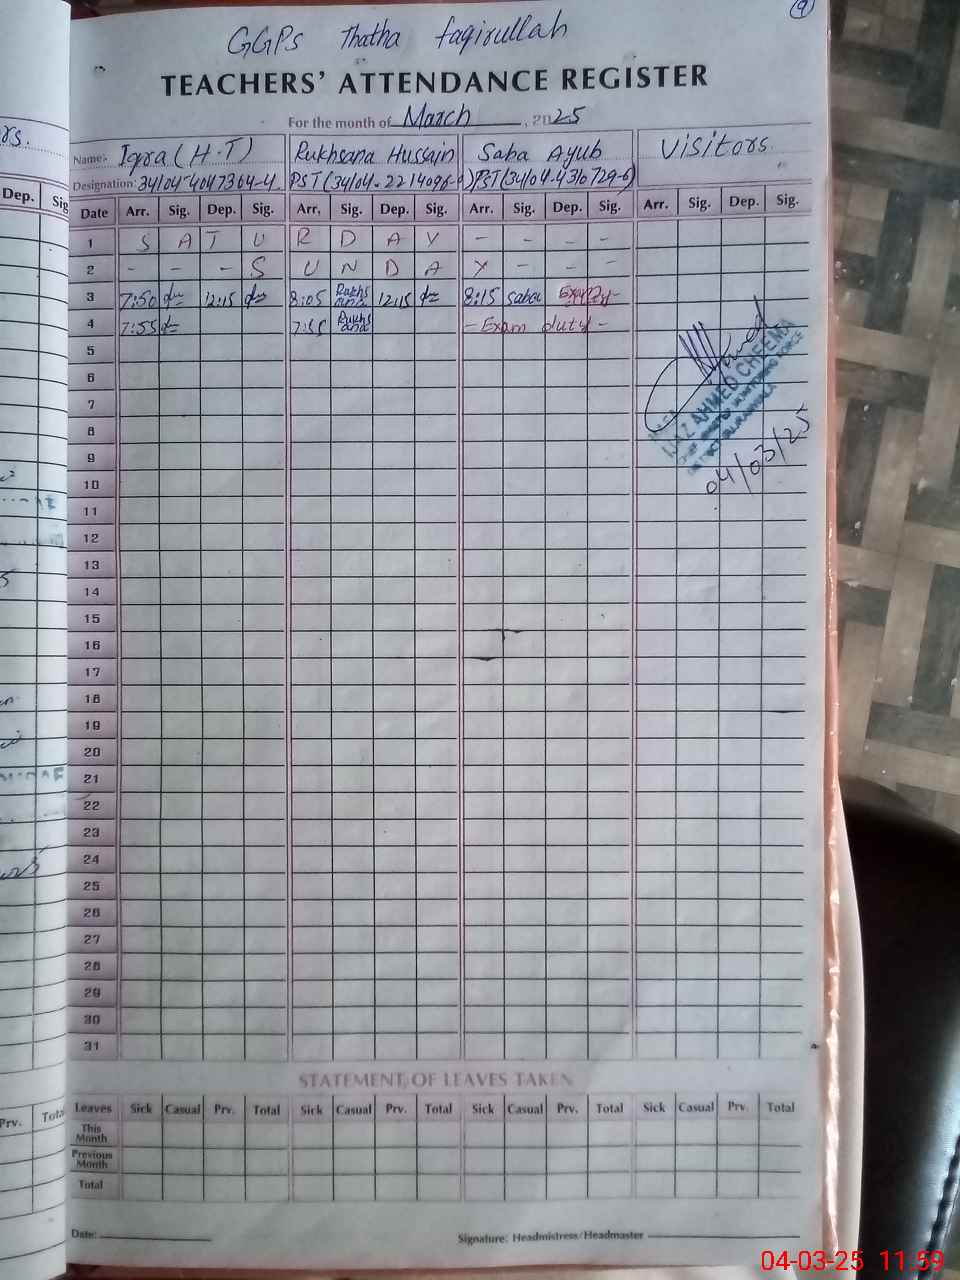 9
GGPS Thatha faqirullah
TEACHERS' ATTENDANCE REGISTER
For the month of March, 2025
Name: Iqra (H.T) Rukhsana Hussain Saba Ayub Visitors.
Designation: 34104-4047364-4 PST (34104-2214096-) PST (34104-4310729-6)
Date Arr. Sig. Dep. Sig. Arr. Sig. Dep. Sig. Arr. Sig. Dep. Sig. Arr. Sig. Dep. Sig.
1 S A T U R D A Y - - - -
2 - - - S U N D A Y - - -
3 7:50 12:15 8:05 Rukhsana 12:15 8:15 Saba Exam
4 7:55 Rukhsana - Exam duty -
5
6
7
8
9
10
11
12
13
14
15
16
17
18
19
20
21
22
23
24
25
26
27
28
29
30
31
AHMED CHEEMA
04/03/25
STATEMENT OF LEAVES TAKEN
Leaves Sick Casual Prv. Total Sick Casual Prv. Total Sick Casual Prv. Total Sick Casual Prv. Total
This Month
Previous Month
Total
Date: Signature: Headmistress/Headmaster
Dep. Sig
Prv. Total
04-03-25 11:59